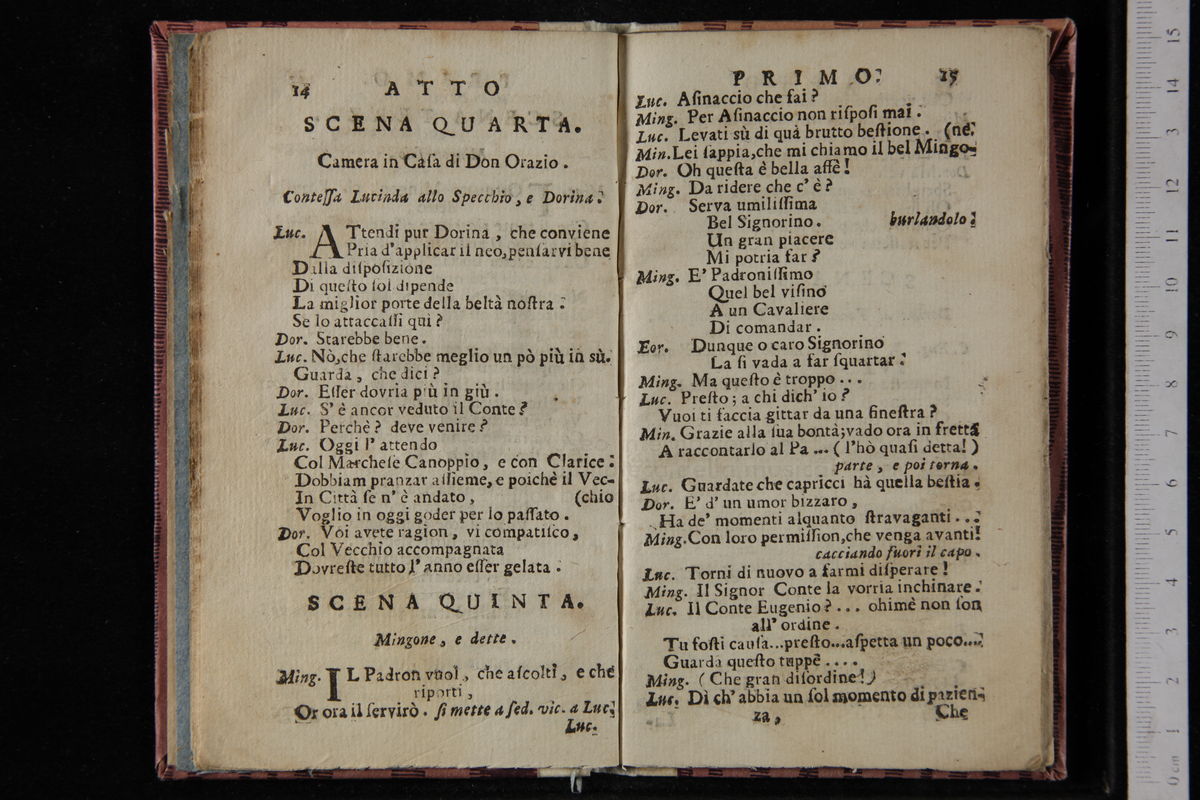 14 ATTO
SCENA QUARTA.
Camera in Caſa di Don Orazio.
Conteſſa Lucinda allo Specchio, e Dorina.
Luc. ATtendi pur Dorina, che conviene
Pria d'applicar il neo, penſarvi bene
Dalla diſpoſizione
Di queſto ſol dipende
La miglior porte della beltà noſtra.
Se lo attaccaſſi qui?
Dor. Starebbe bene.
Luc. Nò, che ſtarebbe meglio un pò più in sù.
Guarda, che dici?
Dor. Eſſer dovria più in giù.
Luc. S' è ancor veduto il Conte?
Dor. Perchè? deve venire?
Luc. Oggi l' attendo
Col Marcheſe Canoppio, e con Clarice:
Dobbiam pranzar aſſieme, e poichè il Vec-
In Città ſe n' è andato, (chio
Voglio in oggi goder per lo paſſato.
Dor. Voi avete ragion, vi compatiſco,
Col Vecchio accompagnata
Dovreſte tutto l' anno eſſer gelata.
SCENA QUINTA.
Mingone, e dette.
Ming. IL Padron vuol, che aſcolti, e che
riporti,
Or ora il ſervirò. ſi mette a ſed. vic. a Luc.
Luc.
PRIMO. 15
Luc. Aſinaccio che fai?
Ming. Per Aſinaccio non riſpoſi mai.
Luc. Levati sù di quà brutto beſtione. (ne.
Min. Lei ſappia, che mi chiamo il bel Mingo-
Dor. Oh queſta è bella affè!
Ming. Da ridere che c' è?
Dor. Serva umiliſſima
Bel Signorino. burlandolo.
Un gran piacere
Mi potria far?
Ming. E' Padroniſſimo
Quel bel viſino
A un Cavaliere
Di comandar.
Eor. Dunque o caro Signorino
La ſi vada a far ſquartar.
Ming. Ma queſto è troppo...
Luc. Preſto; a chi dich' io?
Vuoi ti faccia gittar da una fineſtra?
Min. Grazie alla ſua bontà; vado ora in fretta
A raccontarlo al Pa... (l'hò quaſi detta!)
parte, e poi torna.
Luc. Guardate che capricci hà quella beſtia.
Dor. E' d' un umor bizzaro,
Ha de' momenti alquanto ſtravaganti...
Ming. Con loro permiſſion, che venga avanti!
cacciando fuori il capo.
Luc. Torni di nuovo a farmi diſperare!
Ming. Il Signor Conte la vorria inchinare.
Luc. Il Conte Eugenio?... ohimè non ſon
all' ordine.
Tu foſti cauſa... preſto... aſpetta un poco....
Guarda queſto tuppè....
Ming. (Che gran diſordine!)
Luc. Dì ch' abbia un ſol momento di pazien-
za, Che